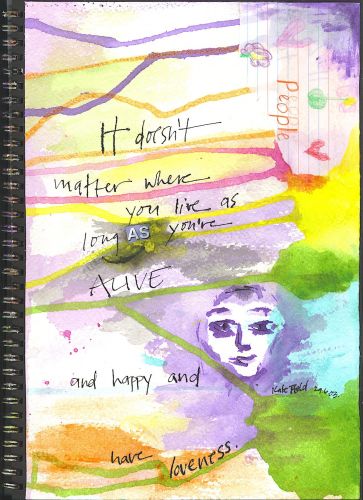 People
It doesn't
matter where
you live as
long AS you're
ALIVE
and happy and
have loveness.